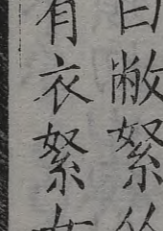 曰敝絮
有衣絮